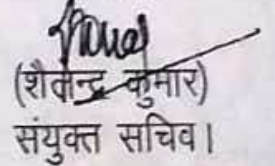 (शैलेन्द्र कुमार)
संयुक्त सचिव।